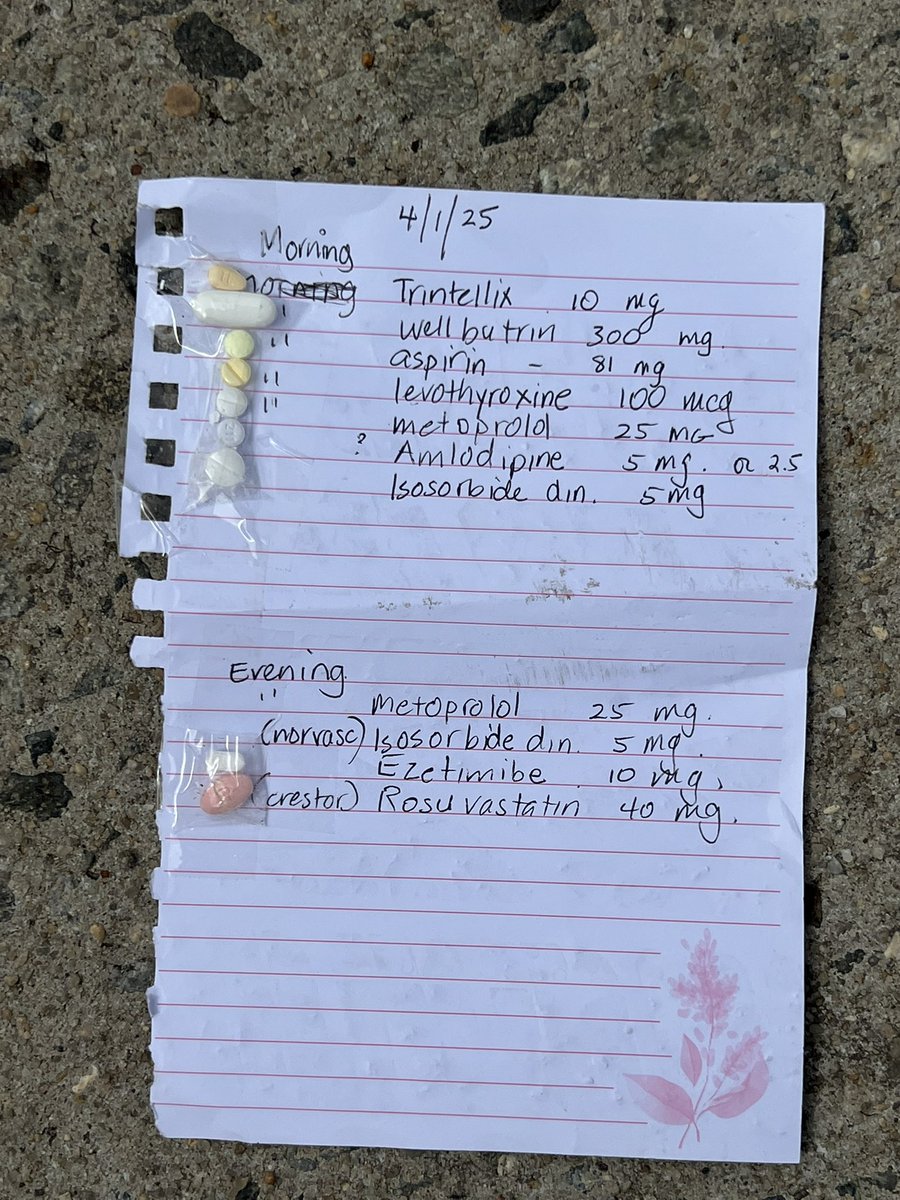 4/1/25
Morning
morning Trintellix 10 mg
" Wellbutrin 300 mg.
" aspirin - 81 mg
" levothyroxine 100 mcg
" metoprolol 25 MG
? Amlodipine 5 mg. or 2.5
Isosorbide din. 5 mg
Evening
" metoprolol 25 mg.
(norvasc) Isosorbide din. 5 mg.
Ezetimibe 10 mg,
(crestor) Rosuvastatin 40 mg.